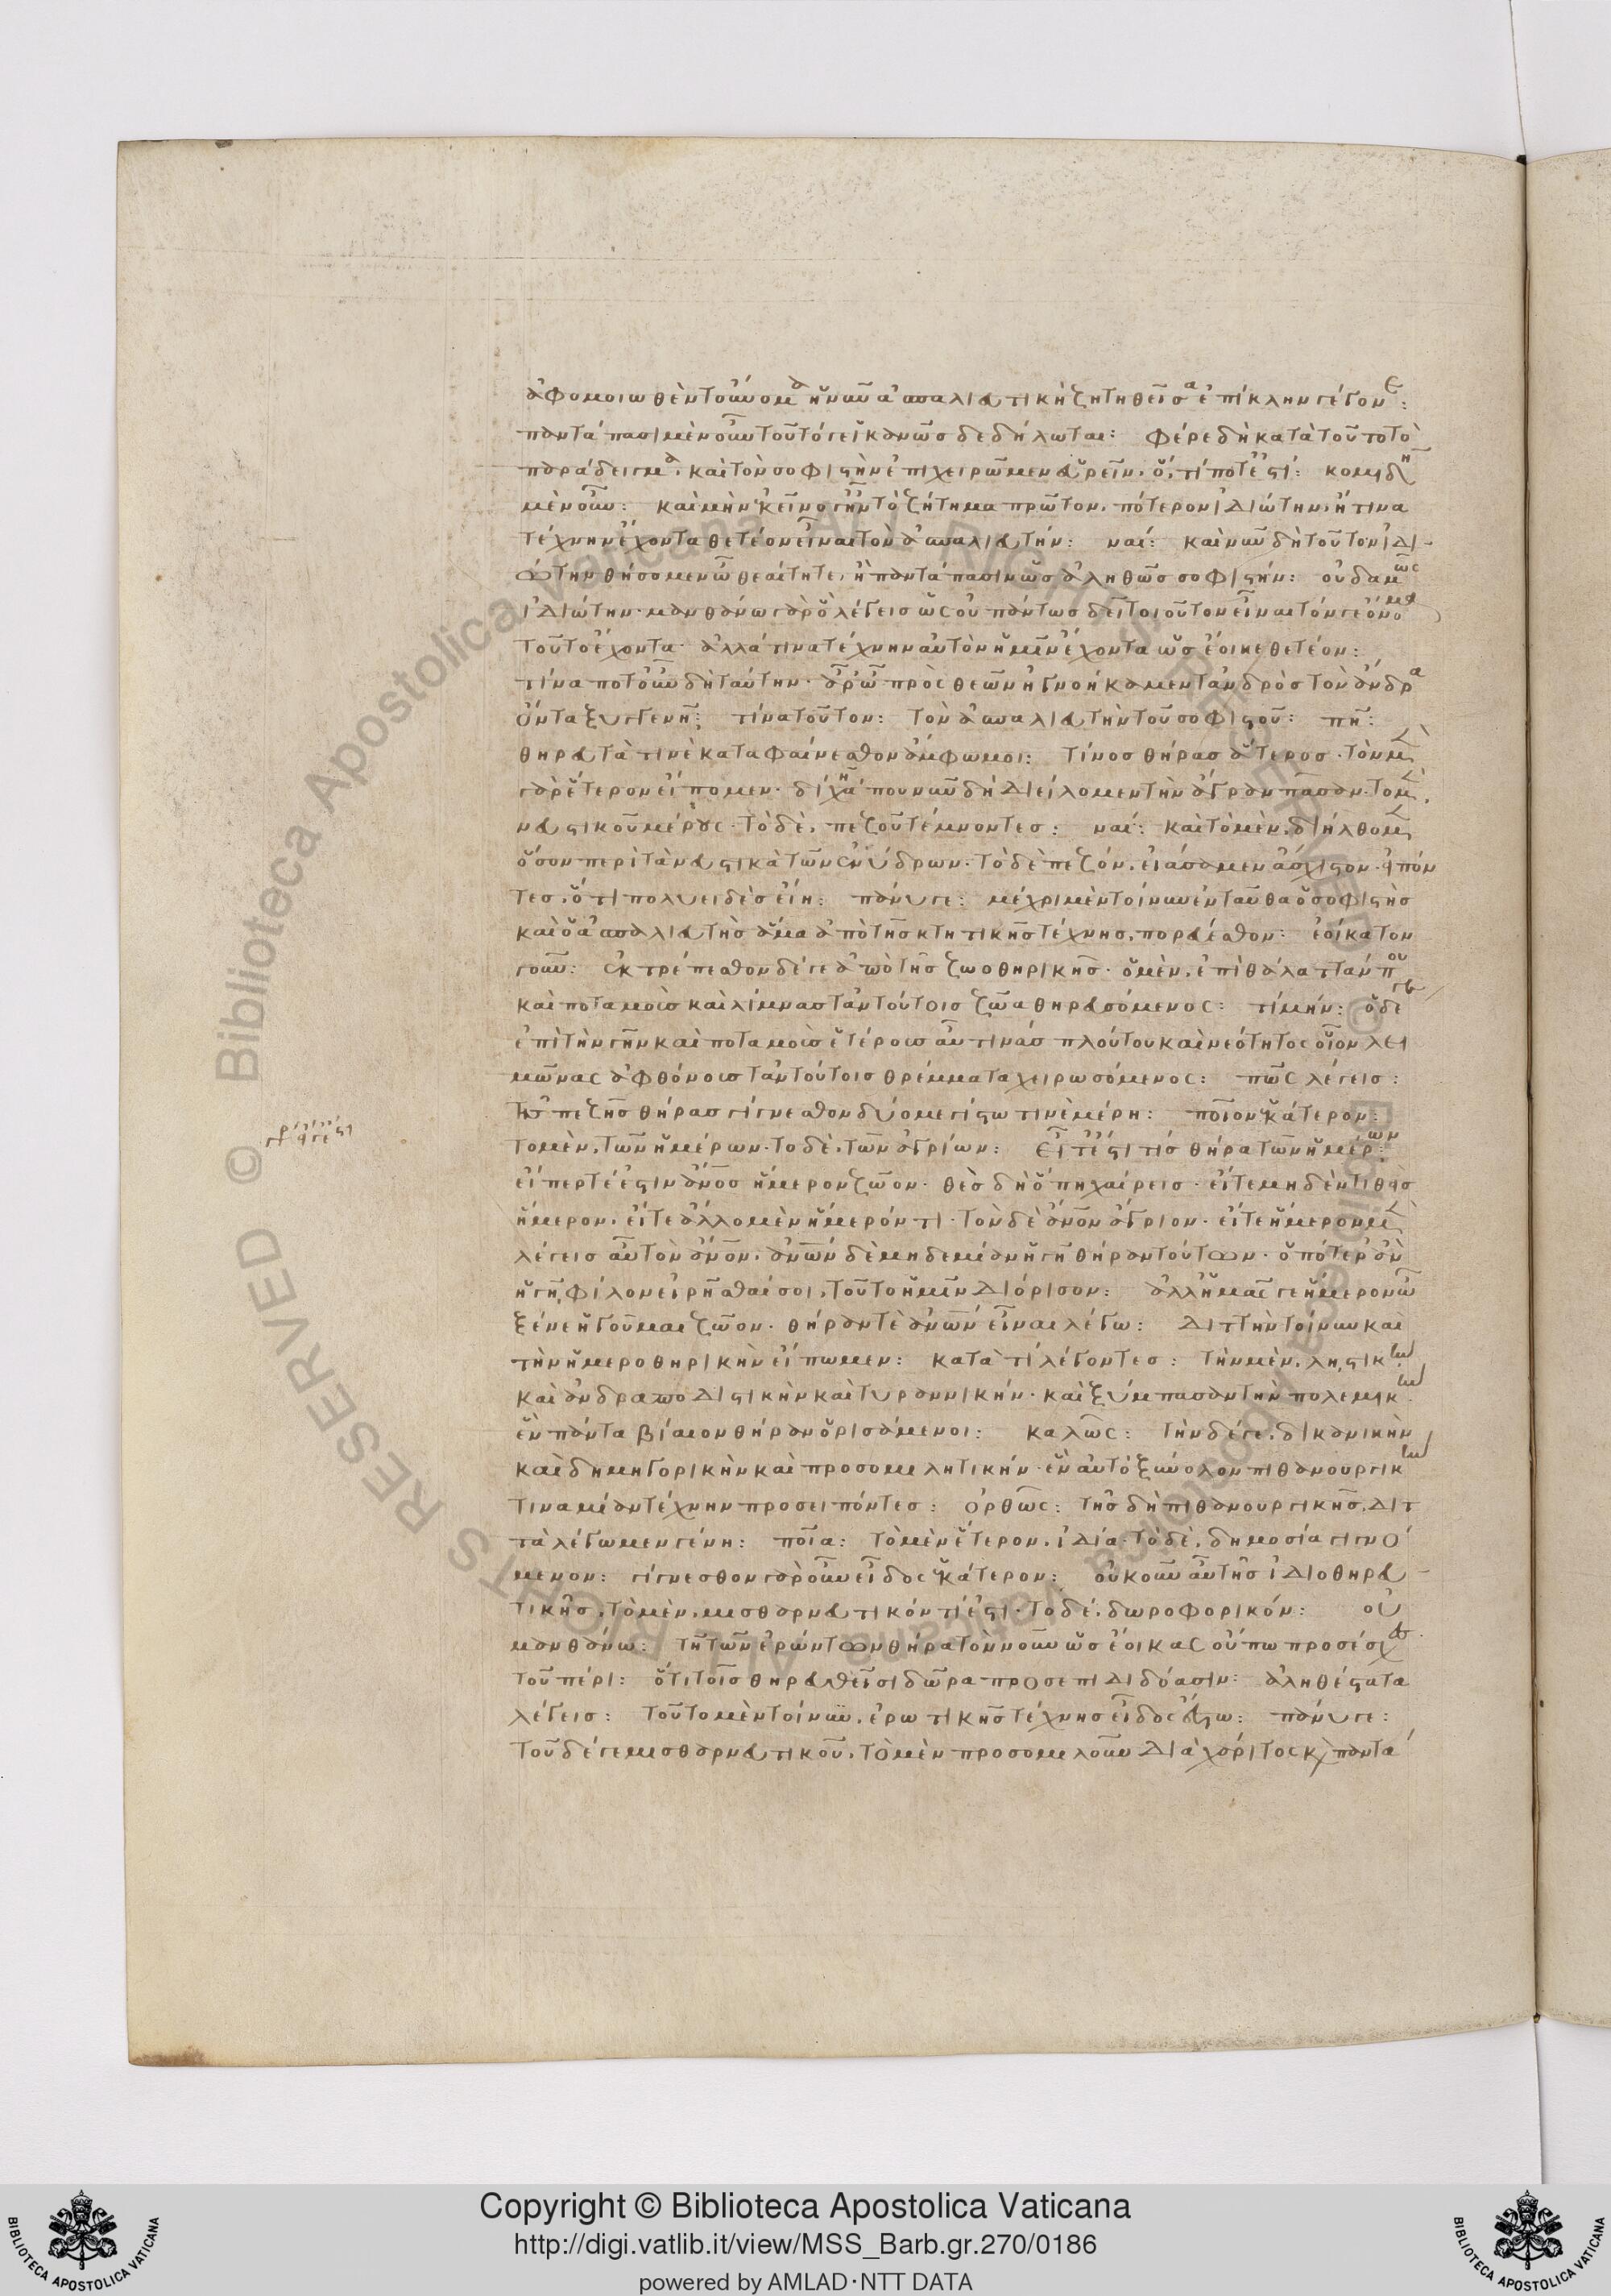 ἀφομοιωθὲν τοὔνομα ἡ νῦν ἀσπαλιευτικὴ ζητηθεῖσα ἐπίκλην γέγονε:
παντάπασι μὲν οὖν τοῦτό γε ἱκανῶς δεδήλωται: φέρε δὴ κατὰ τοῦτο τὸ
παράδειγμα, καὶ τὸν σοφιστὴν ἐπιχειρῶμεν εὑρεῖν, ὅ, τί ποτ' ἐστί: κομιδῆ
μὲν οὖν: καὶ μὴν ἐκεῖνο γ' ἦν τὸ ζήτημα πρῶτον, πότερον ἰδιώτην, ἤ τινα
τέχνην ἔχοντα θετέον εἶναι τὸν ἀσπαλιευτήν: ναί: καὶ νῦν δὴ τοῦτον ἰδι-
ώτην θήσομεν ὦ θεαίτητε, ἢ παντάπασιν ὡς ἀληθῶς σοφιστήν: οὐδαμῶς
ἰδιώτην· μανθάνω γὰρ ὃ λέγεις ὡς οὐ πάντως δεῖ τοιοῦτον εἶναι τόν γε ὄνομα
τοῦτο ἔχοντα· ἀλλά τινα τέχνην αὐτὸν ἡμῖν ἔχοντα ὡς ἔοικε θετέον:
τίνα ποτ' οὖν δὴ ταύτην· ἆρ' ὦ πρὸς θεῶν ἠγνοήκαμεν τἀνδρὸς τὸν ἄνδρα
ὄντα ξυγγενῆ: τίνα τοῦτον: τὸν ἀσπαλιευτὴν τοῦ σοφιστοῦ: πῆ:
θηρευτά τινε καταφαίνεσθον ἄμφω μοι: τίνος θήρας ἅτερος· τὸν μὲν
γὰρ ἕτερον εἴπομεν· δίχα που νῦν δὴ διείλομεν τὴν ἄγραν πᾶσαν· τὸ μὲν,
νευστικοῦ μέρους· τὸ δὲ, πεζοῦ τέμνοντες: ναί: καὶ τὸ μὲν, διήλθομεν
ὅσον περὶ τὰ νευστικὰ τῶν ἐνύδρων· τὸ δὲ πεζόν, εἰάσαμεν ἄσχιστον· εἰπόν
τες, ὅτι πολυειδὲς εἴη: πάνυ γε: μέχρι μὲν τοίνυν ἐνταῦθα ὁ σοφιστὴς
καὶ ὁ ἀσπαλιευτὴς ἅμα ἀπὸ τῆς κτητικῆς τέχνης, πορεύεσθον: ἐοίκατον
γοῦν: ἐκτρέπεσθον δέ γε ἀπὸ τῆς ζωοθηρικῆς· ὁ μὲν, ἐπὶ θάλαττάν που
καὶ ποταμοὺς καὶ λίμνας τἀν τούτοις ζῶα θηρευσόμενος: τί μήν: ὁ δέ γε
ἐπὶ τὴν γῆν καὶ ποταμοὺς ἑτέρους αὖ τινάς πλούτου καὶ νεότητος οἷον λει
μῶνας ἀφθόνους τἀν τούτοις θρέμματα χειρωσόμενος: πῶς λέγεις:
τῆς πεζῆς θήρας γίγνεσθον δύο μεγίστω τινὲ μέρη: ποῖον ἑκάτερον:
τὸ μὲν, τῶν ἡμέρων· τὸ δὲ, τῶν ἀγρίων: εἶτ' ἔστι τις θήρα τῶν ἡμέρων:
εἴπερ γέ ἐστιν ἄνος ἥμερον ζῶον· θὲς δὴ ὅπη χαίρεις· εἴτε μηδὲν τιθεὶς
ἥμερον, εἴτε ἄλλο μὲν ἥμερόν τι· τὸν δὲ ἄνον ἄγριον· εἴτε ἥμερον μὲν
λέγεις αὖ τὸν ἄνον, ἀνων δὲ μηδεμίαν ἡγῆ θήραν τούτων· ὁπότερ' ἂν
ἡγῆ φίλον εἰρῆσθαί σοι, τοῦτο ἡμῖν διόρισον: ἀλλ' ἡμᾶς γε ἥμερον ὦ
ξένε ἡγοῦμαι ζῶον· θήραν τὲ ἀνων εἶναι λέγω: διττὴν τοίνυν καὶ
τὴν ἡμεροθηρικὴν εἴπωμεν: κατὰ τί λέγοντες: τὴν μὲν, ληστικὴν
καὶ ἀνδραποδιστικὴν καὶ τυραννικήν· καὶ ξύμπασαν τὴν πολεμικὴν
ἓν πάντα βίαιον θήραν ὁρισάμενοι: καλῶς: τὴν δέ γε, δικανικὴν
καὶ δημηγορικὴν καὶ προσομιλητικήν· ἓν αὖ τὸ ξύνολον πιθανουργικὴν
τινα μίαν τέχνην προσειπόντες: ὀρθῶς: τῆς δὴ πιθανουργικῆς, διτ
τὰ λέγωμεν γένη: ποῖα: τὸ μὲν ἕτερον, ἰδία· τὸ δὲ, δημοσία γιγνό
μενον: γίγνεσθον γὰρ οὖν εἶδος ἑκάτερον: οὐκοῦν αὖ τῆς ἰδιοθηρευ-
τικῆς, τὸ μὲν, μισθαρνευτικόν τί ἐστι· τὸ δέ, δωροφορικόν: οὐ
μανθάνω: τῆ τῶν ἐρώντων θήρα τὸν νοῦν ὡς ἔοικας οὔπω προσέσχες.
τοῦ πέρι: ὅτι τοῖς θηρευθεῖσι δῶρα προσεπιδιδόασιν: ἀληθέστατα
λέγεις: τοῦτο μὲν τοίνυν, ἐρωτικῆς τέχνης εἶδος ἔστω: πάνυ γε:
τοῦ δέ γε μισθαρνευτικοῦ, τὸ μὲν προσομιλοῦν διὰ χάριτος κ παντά